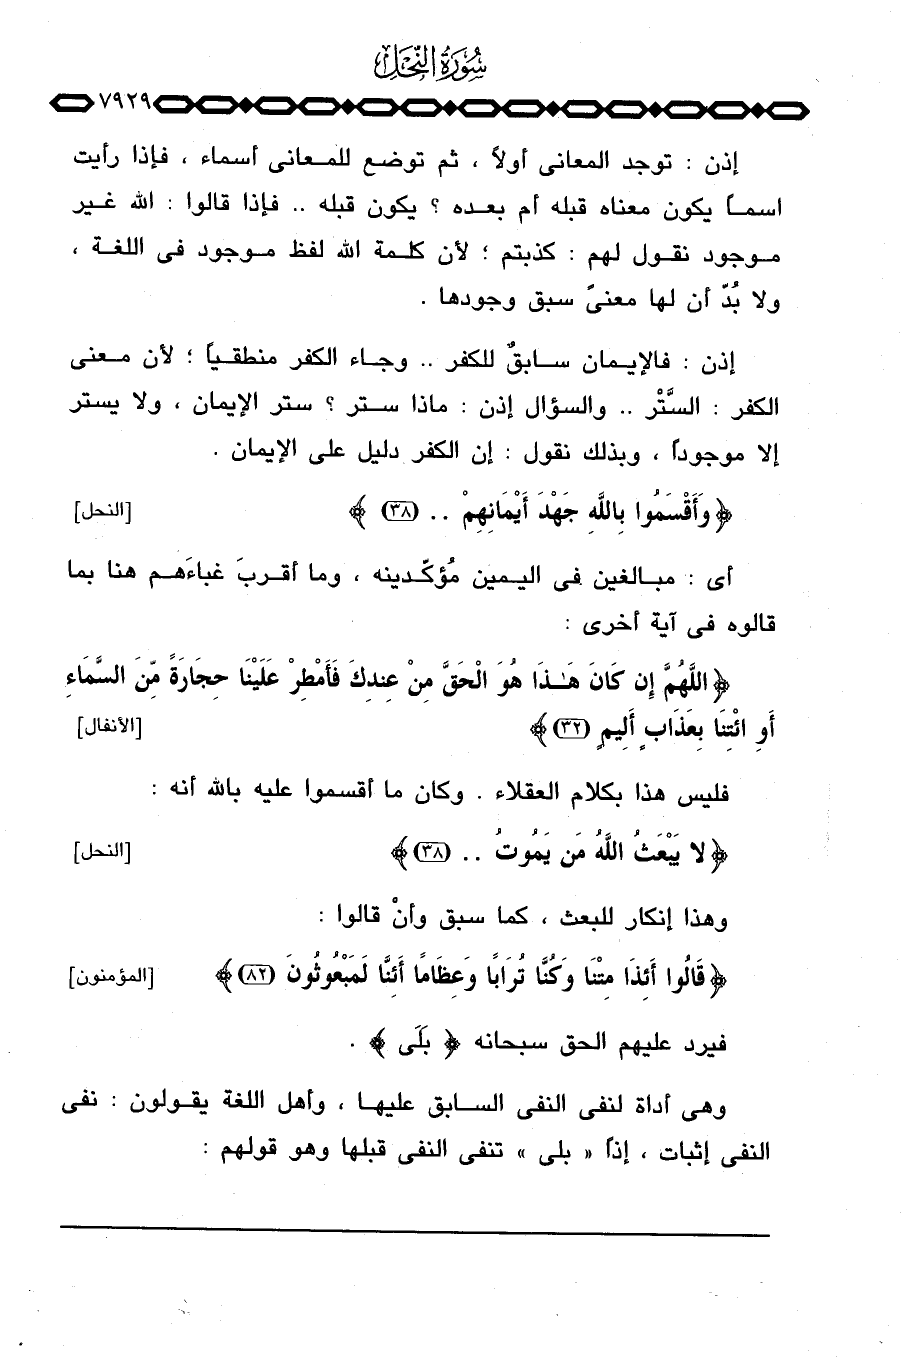 سُورَةُ النَّحْلِ
٧٩٢٩
إذن : توجد المعانى أولاً ، ثم توضع للمـعانى أسماء ، فإذا رأيت
اسمـاً يكون معناه قبله أم بعـده ؟ يكون قبله .. فإذا قالوا : الله غـير
مـوجود نقـول لهم : كذبتم ؛ لأن كلـمة الله لفظ مـوجود فى اللغـة ،
ولا بُدّ أن لها معنىً سبق وجودها .
إذن : فالإيـمان سـابقٌ للكفر .. وجـاء الكفر منطقـياً ؛ لأن مـعنى
الكفر : السَّتْر .. والسؤال إذن : ماذا سـتر ؟ ستر الإيمان ، ولا يستر
إلا موجوداً ، وبذلك نقول : إن الكفر دليل على الإيمان .
﴿ وَأَقْسَمُوا بِاللَّهِ جَهْدَ أَيْمَانِهِمْ .. (٣٨) ﴾ [النحل]
أى : مبـالغين فى اليـمين مُؤكّـدينه ، وما أقـربَ غباءَهـم هنا بما
قالوه فى آية أخرى :
﴿ اللَّهُمَّ إِن كَانَ هَـٰـذَا هُوَ الْحَقَّ مِنْ عِندِكَ فَأَمْطِرْ عَلَيْنَا حِجَارَةً مِّنَ السَّمَاءِ
أَوِ ائْتِنَا بِعَذَابٍ أَلِيمٍ (٣٢) ﴾ [الأنفال]
فليس هذا بكلام العقلاء . وكان ما أقسموا عليه بالله أنه :
﴿ لا يَبْعَثُ اللَّهُ مَن يَمُوتُ .. (٣٨) ﴾ [النحل]
وهذا إنكار للبعث ، كما سبق وأنْ قالوا :
﴿ قَالُوا أَئِذَا مِتْنَا وَكُنَّا تُرَابًا وَعِظَامًا أَئِنَّا لَمَبْعُوثُونَ (٨٢) ﴾ [المؤمنون]
فيرد عليهم الحق سبحانه ﴿ بَلَى ﴾ .
وهى أداة لنفى النفى السـابق عليهـا ، وأهل اللغة يقـولون : نفى
النفى إثبات ، إذاً « بلى » تنفى النفى قبلها وهو قولهم :